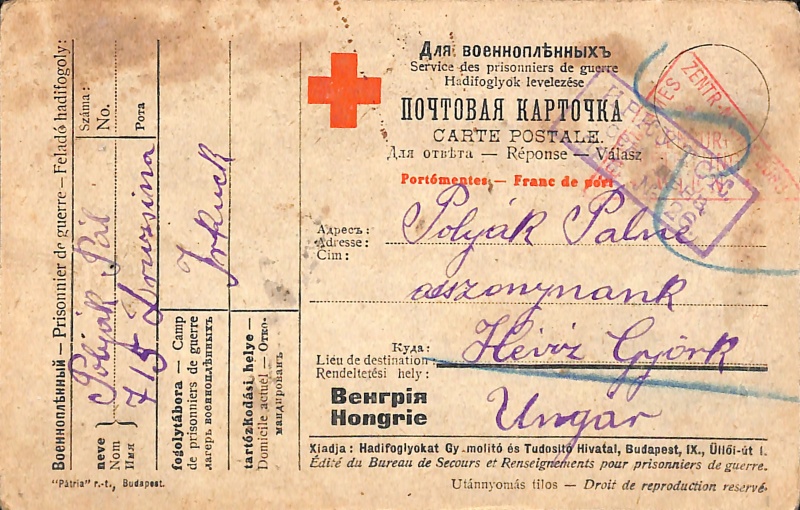 Военноплѣнный — Prisonnier de guerre — Feladó hadifogoly:
Száma:
No.
Рота
715 Druzsina
neve
Nom
Имя
Polyák Pál
fogolytábora — Camp
de prisonniers de guerre
лагерь военноплѣнныхъ
Irkuck
tartózkodási helye —
Domicile actuel — Отко-
мандированъ
"Pátria" r.-t., Budapest.
Для военноплѣнныхъ
Service des prisonniers de guerre
Hadifoglyok levelezése
ПОЧТОВАЯ КАРТОЧКА
CARTE POSTALE.
Для отвѣта — Réponse — Válasz
Portómentes — Franc de port
Адресъ:
Adresse:
Cim:
Polyák Palné
asszonynank
Куда:
Lieu de destination
Rendeltetési hely:
Héviz Györk
Венгрія
Hongrie
Ungár
Kiadja: Hadifoglyokat Gyámolitó és Tudositó Hivatal, Budapest, IX., Üllői-út 1.
Édité du Bureau de Secours et Renseignements pour prisonniers de guerre.
Utánnyomás tilos — Droit de reproduction reservé.